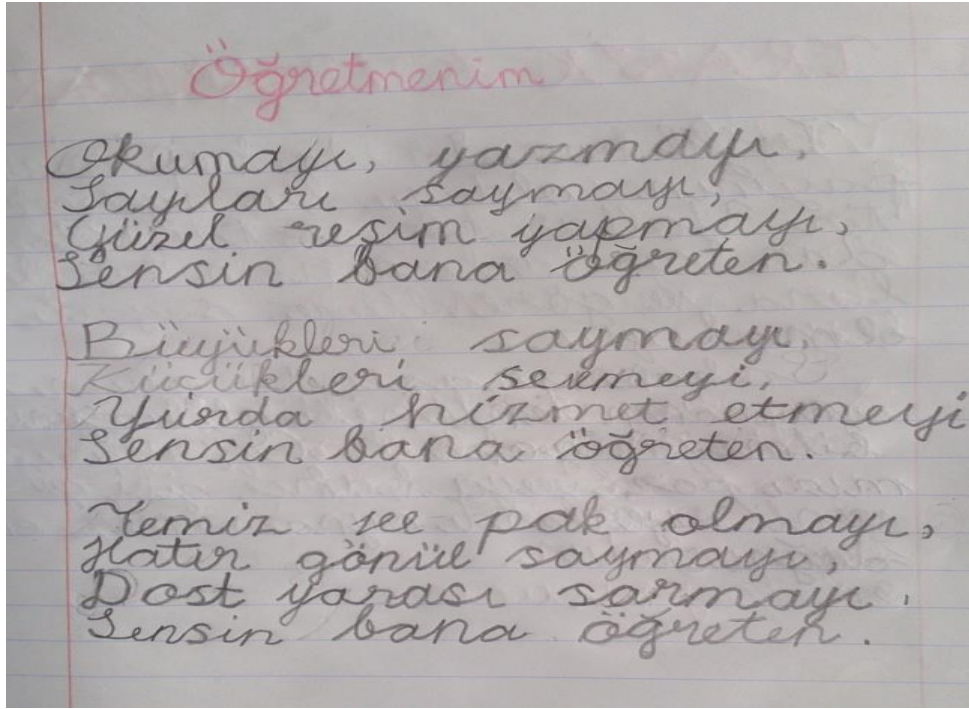 Öğretmenim
Okumayı, yazmayı,
Sayıları saymayı,
Güzel resim yapmayı,
Sensin bana öğreten.
Büyükleri saymayı,
Küçükleri sevmeyi,
Yurda hizmet etmeyi
Sensin bana öğreten.
Temiz ve pak olmayı,
Hatır gönül saymayı,
Dost yarası sarmayı,
Sensin bana öğreten.